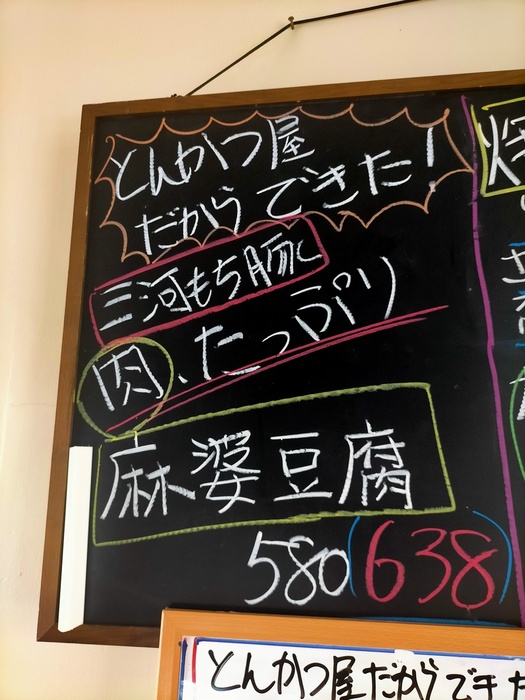 とんかつ屋
だからできた!
三河もち豚
肉、たっぷり
麻婆豆腐
580(638)
とんかつ屋だからでき